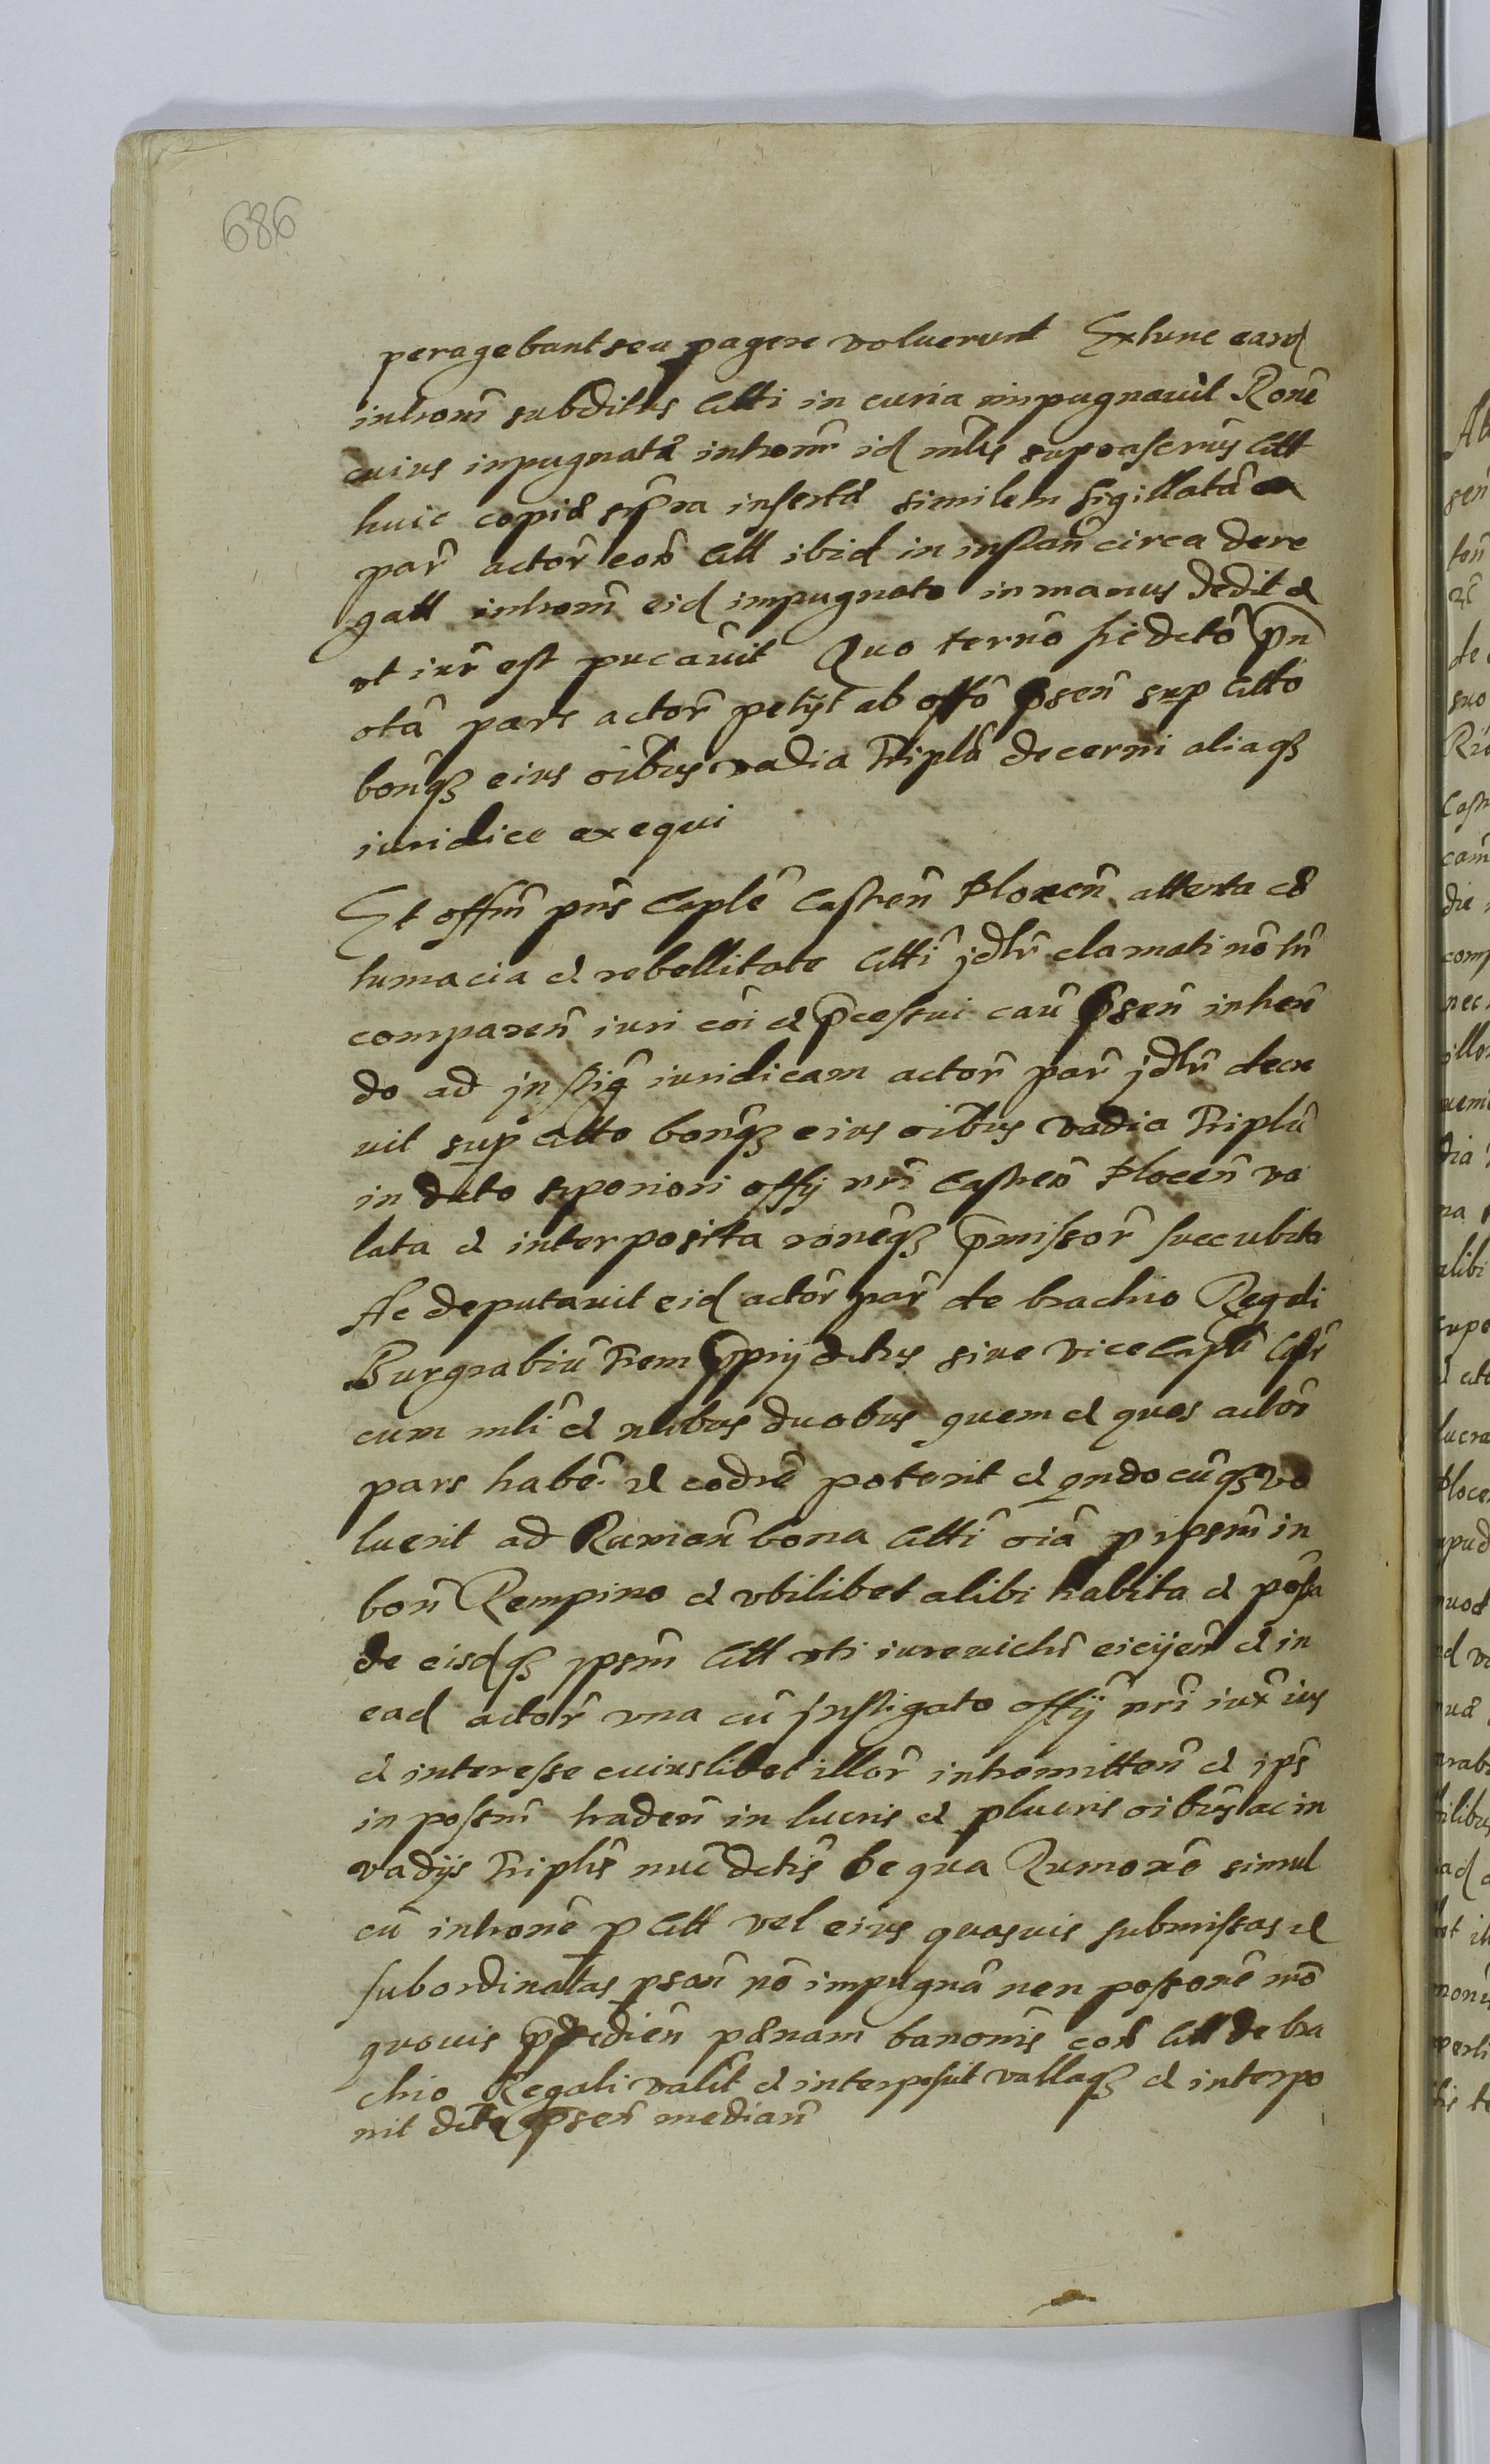 686
peragebant seu pagere voluerunt Extunc eand
introm̃ subditus Citti in curia impugnauit Rone
cuius inpugnatæ introm̃ id mlis suprascrus Citt
huic copiæ supra insertæ similem sigillatã
par̃ actor̃ eod Citt ibid in instañ circa dere
gatt introm̃ eid impugnato in manus dedit et
vt iur̃ est pucauit Quo termõ sic dctõ pñ
otã pars actor̃ petijt ab offõ psen̄ sup Citto
bonqȝ eius oibus vadia Triplã decerni aliaqȝ
iuridice exequi
Et offm̃ pñs Caplẽ Castreñ Plocen̄ attenta cõ
tumacia et rebellitate Citti jdlr̃ clamati nõ tñ
compareñ iuri cõi et pcessui cau psen̄ inheren
do ad jnstig iuridicam actor̃ par̃ jdlr̃ decre
uit sup Citto bonqȝ eius oibus vadia Triplã
in dcto superiori offij nri Castren̄ Plocen̄ va
lata et interposita ronẽqȝ pmissor̃ succubita
Ac deputauit eid actor̃ par̃ de brachio Regali
Burgrabiũ Trem pprij dctus siue vice Capt̃ Castr
cum mli et nlibus duobus quem et quos actor̃
pars habẽ et codrẽ poterit et qndocũqȝ vo
luerit ad Ruman̄ bona Citti oiã p ipsm̃ in
bon̄ Rempino et vbilibet alibi habita et possa
de eisdqȝ ypsm̃ Citt vti iureuictũ eicijen̄ et in
ead actor̃ vna cũ jnstigato offij nri iux̃ ius
et interesse cuiuslibet illor̃ intromitten̄ et ips
in possm̃ traden̄ in lucris et plucris oibus ac in
vadijs Triplis nuc dctis be qua Rumoxẽ simul
cũ intronẽ p Citt vel eius quasuis submissas et
subordinatas psoñ nõ impugnã nen possonẽ mõ
quouis ppedien̄ pœnam banonis eod Citt de bra
chio Regali valit et interposuit vallaqȝ et interpo
nit dcto psen̄ median̄